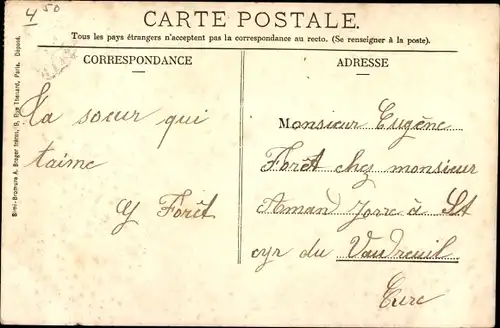 4 50
CARTE POSTALE.
Tous les pays étrangers n'acceptent pas la correspondance au recto. (Se renseigner à la poste).
CORRESPONDANCE
ADRESSE
Simi-Bromure A. Breger frères, 9, Rue Thénard, Paris. Déposé.
La soeur qui
taime
Y Forêt
Monsieur Eugène
Forêt chez monsieur
Amand Jorre à St
cyr du Vaudreuil
Eure